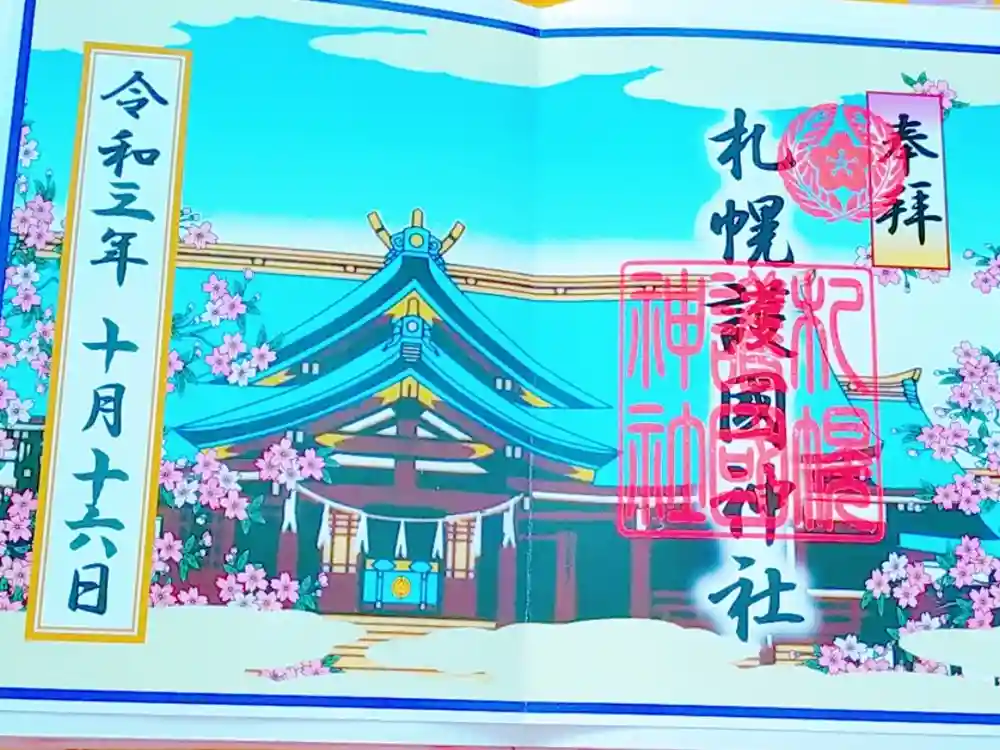 奉拝
札幌護國神社
札幌護国神社
令和三年 十月十六日